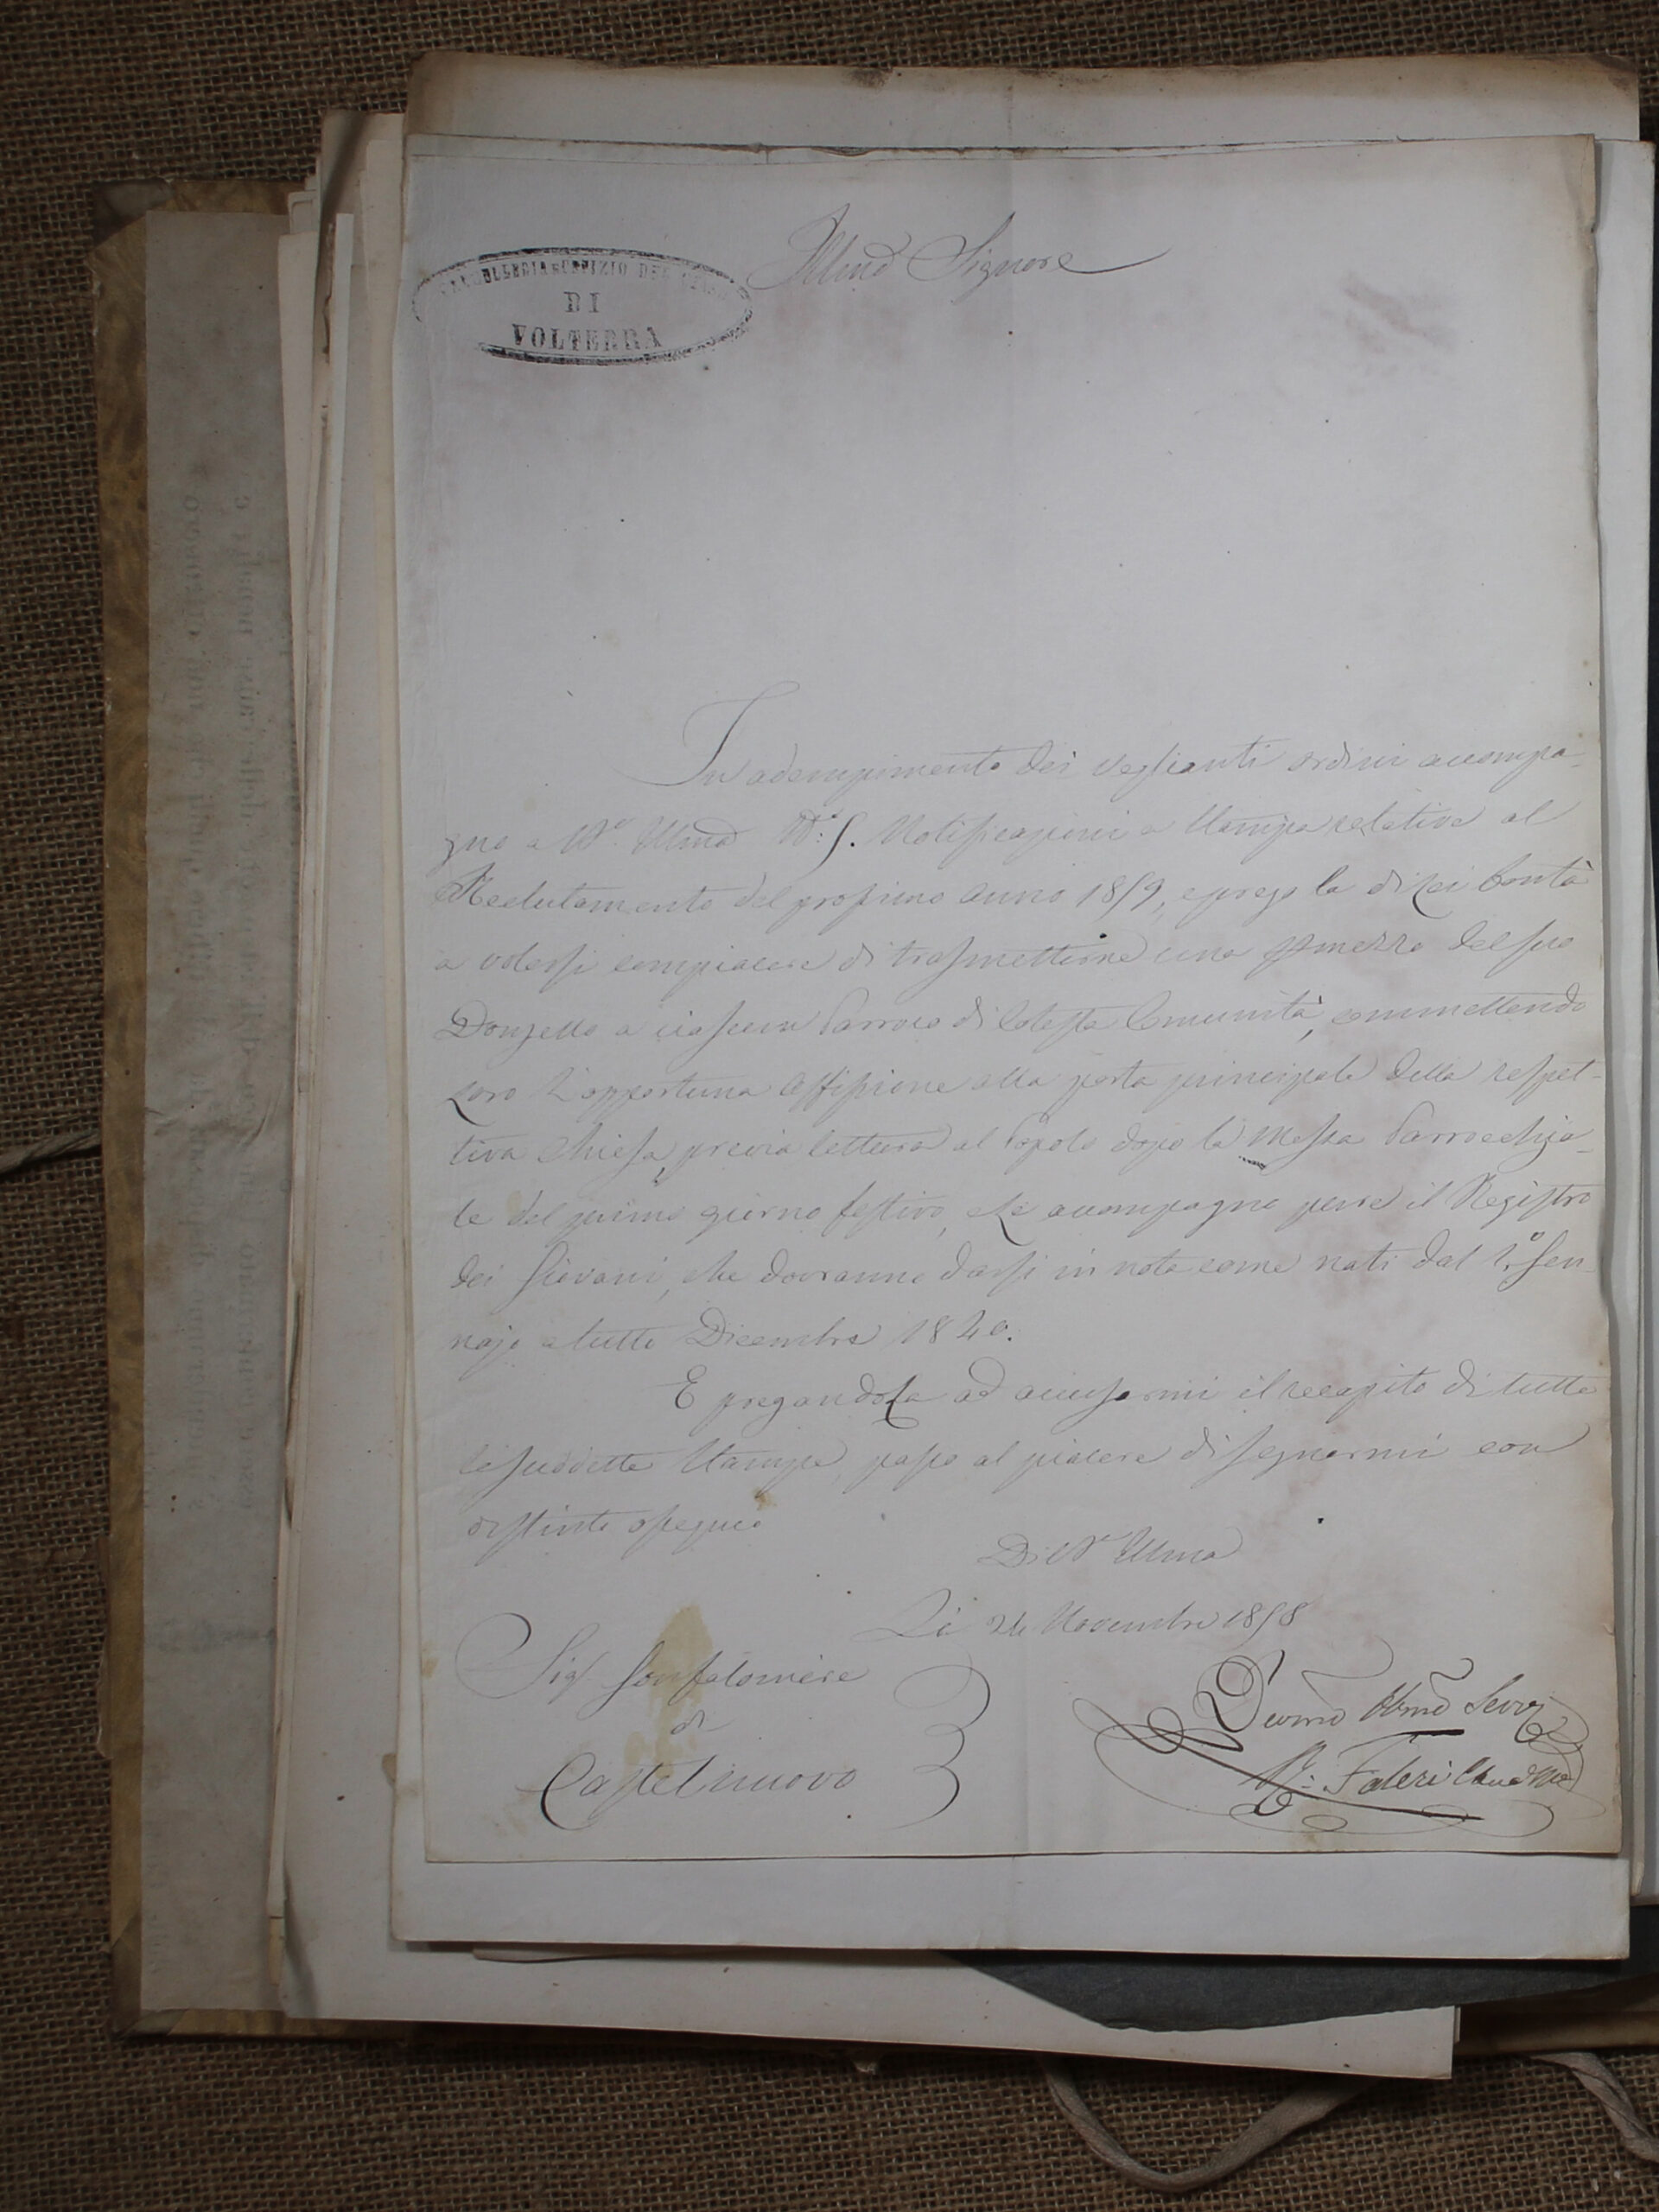 Illmo Signore
DI
VOLTERRA
In adempimento dei veglianti ordini accompa-
gno a V.a Illma N.o 5. Notificazioni a Stampa relative al
Reclutamento del prossimo anno 1859, e prego la di Lei bontà
a volersi compiacere di trasmetterne una p mezzo del suo
Donzello a ciascun Parroco di cotesta Comunità, commettendo
Loro l'opportuna affissione alla porta principale della respet-
tiva Chiesa, previa lettura al Popolo dopo la Messa Parrocchia-
le del primo giorno festivo, e Le accompagno pure il Registro
dei Giovani, che dovranno darsi in nota come nati dal 1.o Gen-
najo a tutto Dicembre 1840.
E pregandola ad accusarmi il recapito di tutte
le suddette Stampe, passo al piacere di segnarmi con
distinto ossequio
Di V.a Illma
Li 24 Novembre 1858
Sig.r Gonfaloniere
di
Castelnuovo
Devmo Obmo Serv.
Faleri